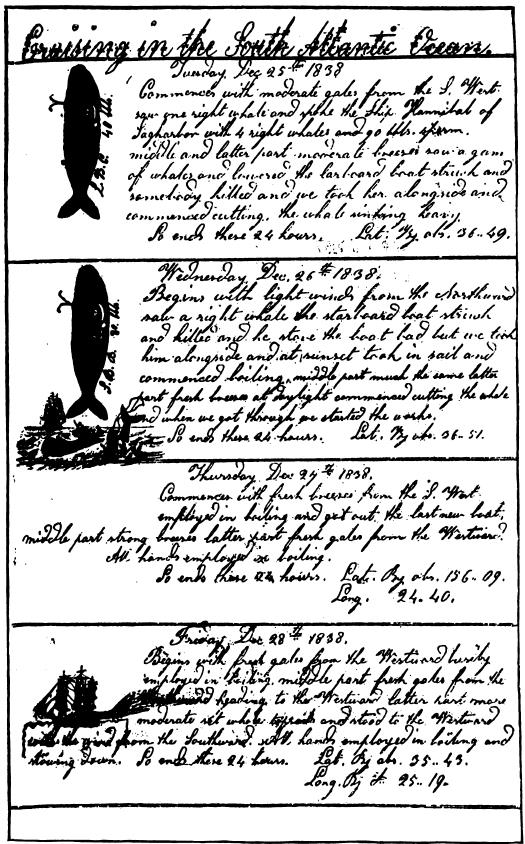 Cruising in the South Atlantic Ocean.
Tuesday Dec 25th 1838
Commences with moderate gales from the S. West.
saw one right whale and spoke the Ship Hannibal of
Sagharbor with 4 right whales and 90 bbls. sperm.
middle and latter part moderate breezes saw a gam
of whales and lowered the larboard boat struck and
somebody killed and we took her alongside and
commenced cutting. the whale sinking heavy.
So ends these 24 hours. Lat. By obs. 36..49.
L.B.C. 40 bbl.
Wednesday Dec. 26th 1838.
Begins with light winds from the Northward
saw a right whale the starboard boat struck
and killed and he stove the boat bad but we took
him alongside and at sunset took in sail and
commenced boiling, middle part much the same latter
part fresh breezes at daylight commenced cutting the whale
and when we got through we started the works.
So ends these 24 hours. Lat. By obs. 36-51.
S.B.B. bbl.
Thursday Dec 27th 1838.
Commences with fresh breezes from the S. West.
employed in boiling and got out the last new boat,
middle part strong breezes latter part fresh gales from the Westward.
All hands employed in boiling.
So ends these 24 hours. Lat. By obs. 156..09.
Long. 24..40.
Friday Dec 28th 1838.
Begins with fresh gales from the Westward busily
employed in boiling, middle part fresh gales from the
heading to the Westward latter part more
moderate set whole and stood to the Westward
with the wind from the Southward. All hands employed in boiling and
stowing down. So ends these 24 hours. Lat. By obs. 35..43.
Long. By 25..19.